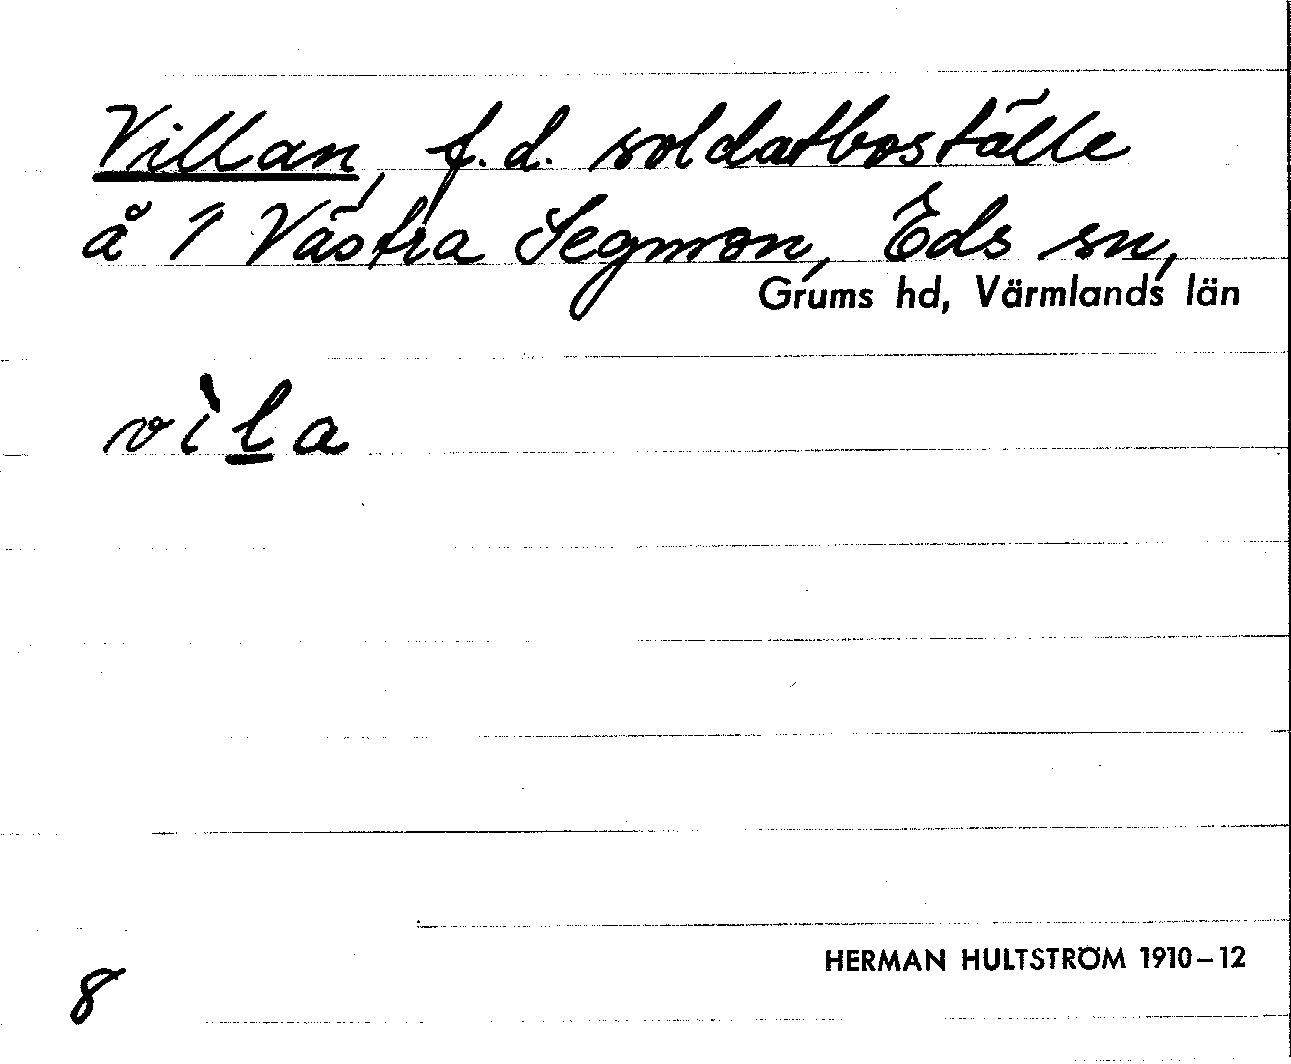 Villan, f.d. soldatboställe
å 1 Västra Segmon, Eds sn,
Grums hd, Värmlands län
vìl̲a
8
HERMAN HULTSTRÖM 1910–12